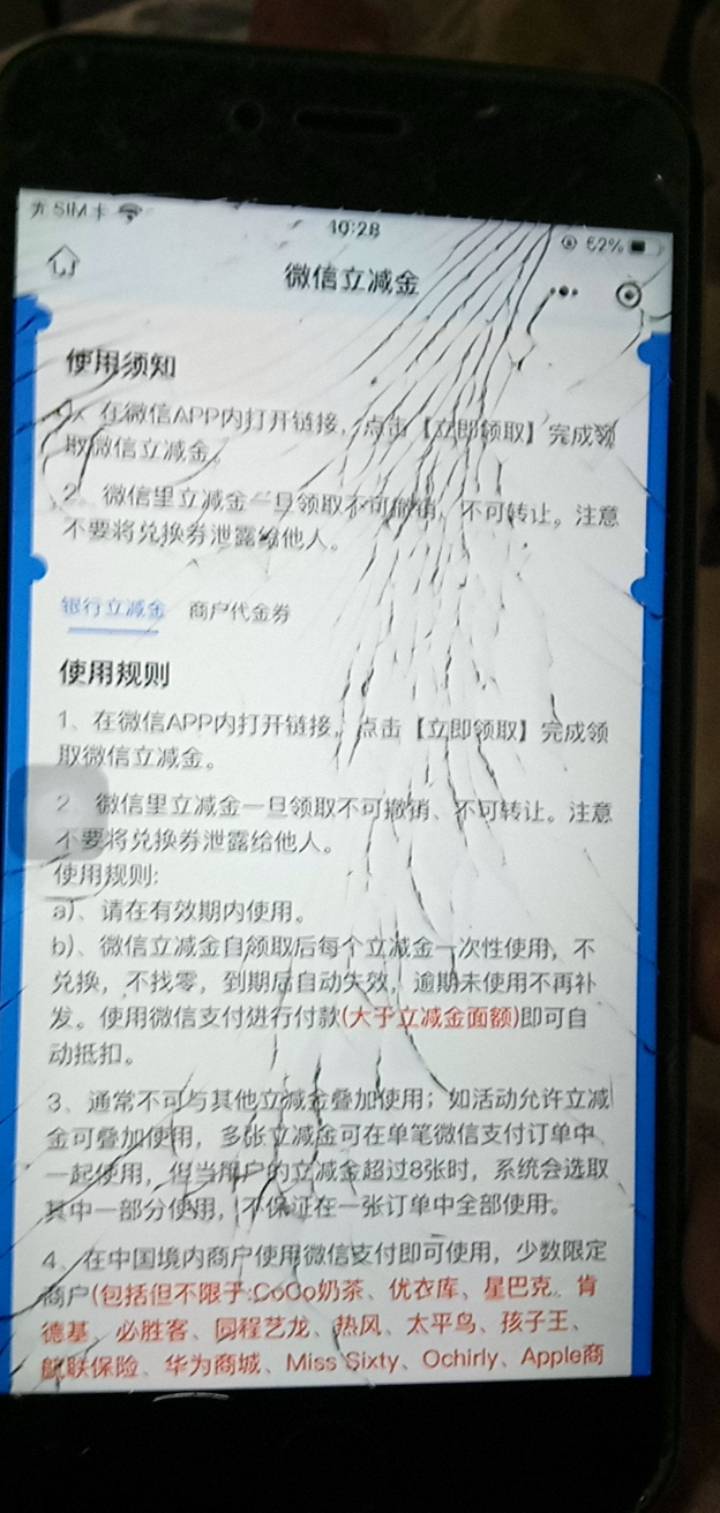 无SIM卡
10:28
52%
微信立减金
使用须知
1、在微信APP内打开链接，点击【立即领取】完成领
取微信立减金。
2、微信里立减金一旦领取不可撤销、不可转让。注意
不要将兑换券泄露给他人。
银行立减金 商户代金券
使用规则
1、在微信APP内打开链接，点击【立即领取】完成领
取微信立减金。
2、微信里立减金一旦领取不可撤销、不可转让。注意
不要将兑换券泄露给他人。
使用规则:
a)、请在有效期内使用。
b)、微信立减金自领取后每个立减金一次性使用，不
兑换，不找零，到期后自动失效，逾期未使用不再补
发。使用微信支付进行付款(大于立减金面额)即可自
动抵扣。
3、通常不可与其他立减金叠加使用；如活动允许立减
金可叠加使用，多张立减金可在单笔微信支付订单中
一起使用，但当用户的立减金超过8张时，系统会选取
其中一部分使用，不保证在一张订单中全部使用。
4、在中国境内商户使用微信支付即可使用，少数限定
商户(包括但不限于:CoCo奶茶、优衣库、星巴克、肯
德基、必胜客、同程艺龙、热风、太平鸟、孩子王、
航联保险、华为商城、Miss Sixty、Ochirly、Apple商